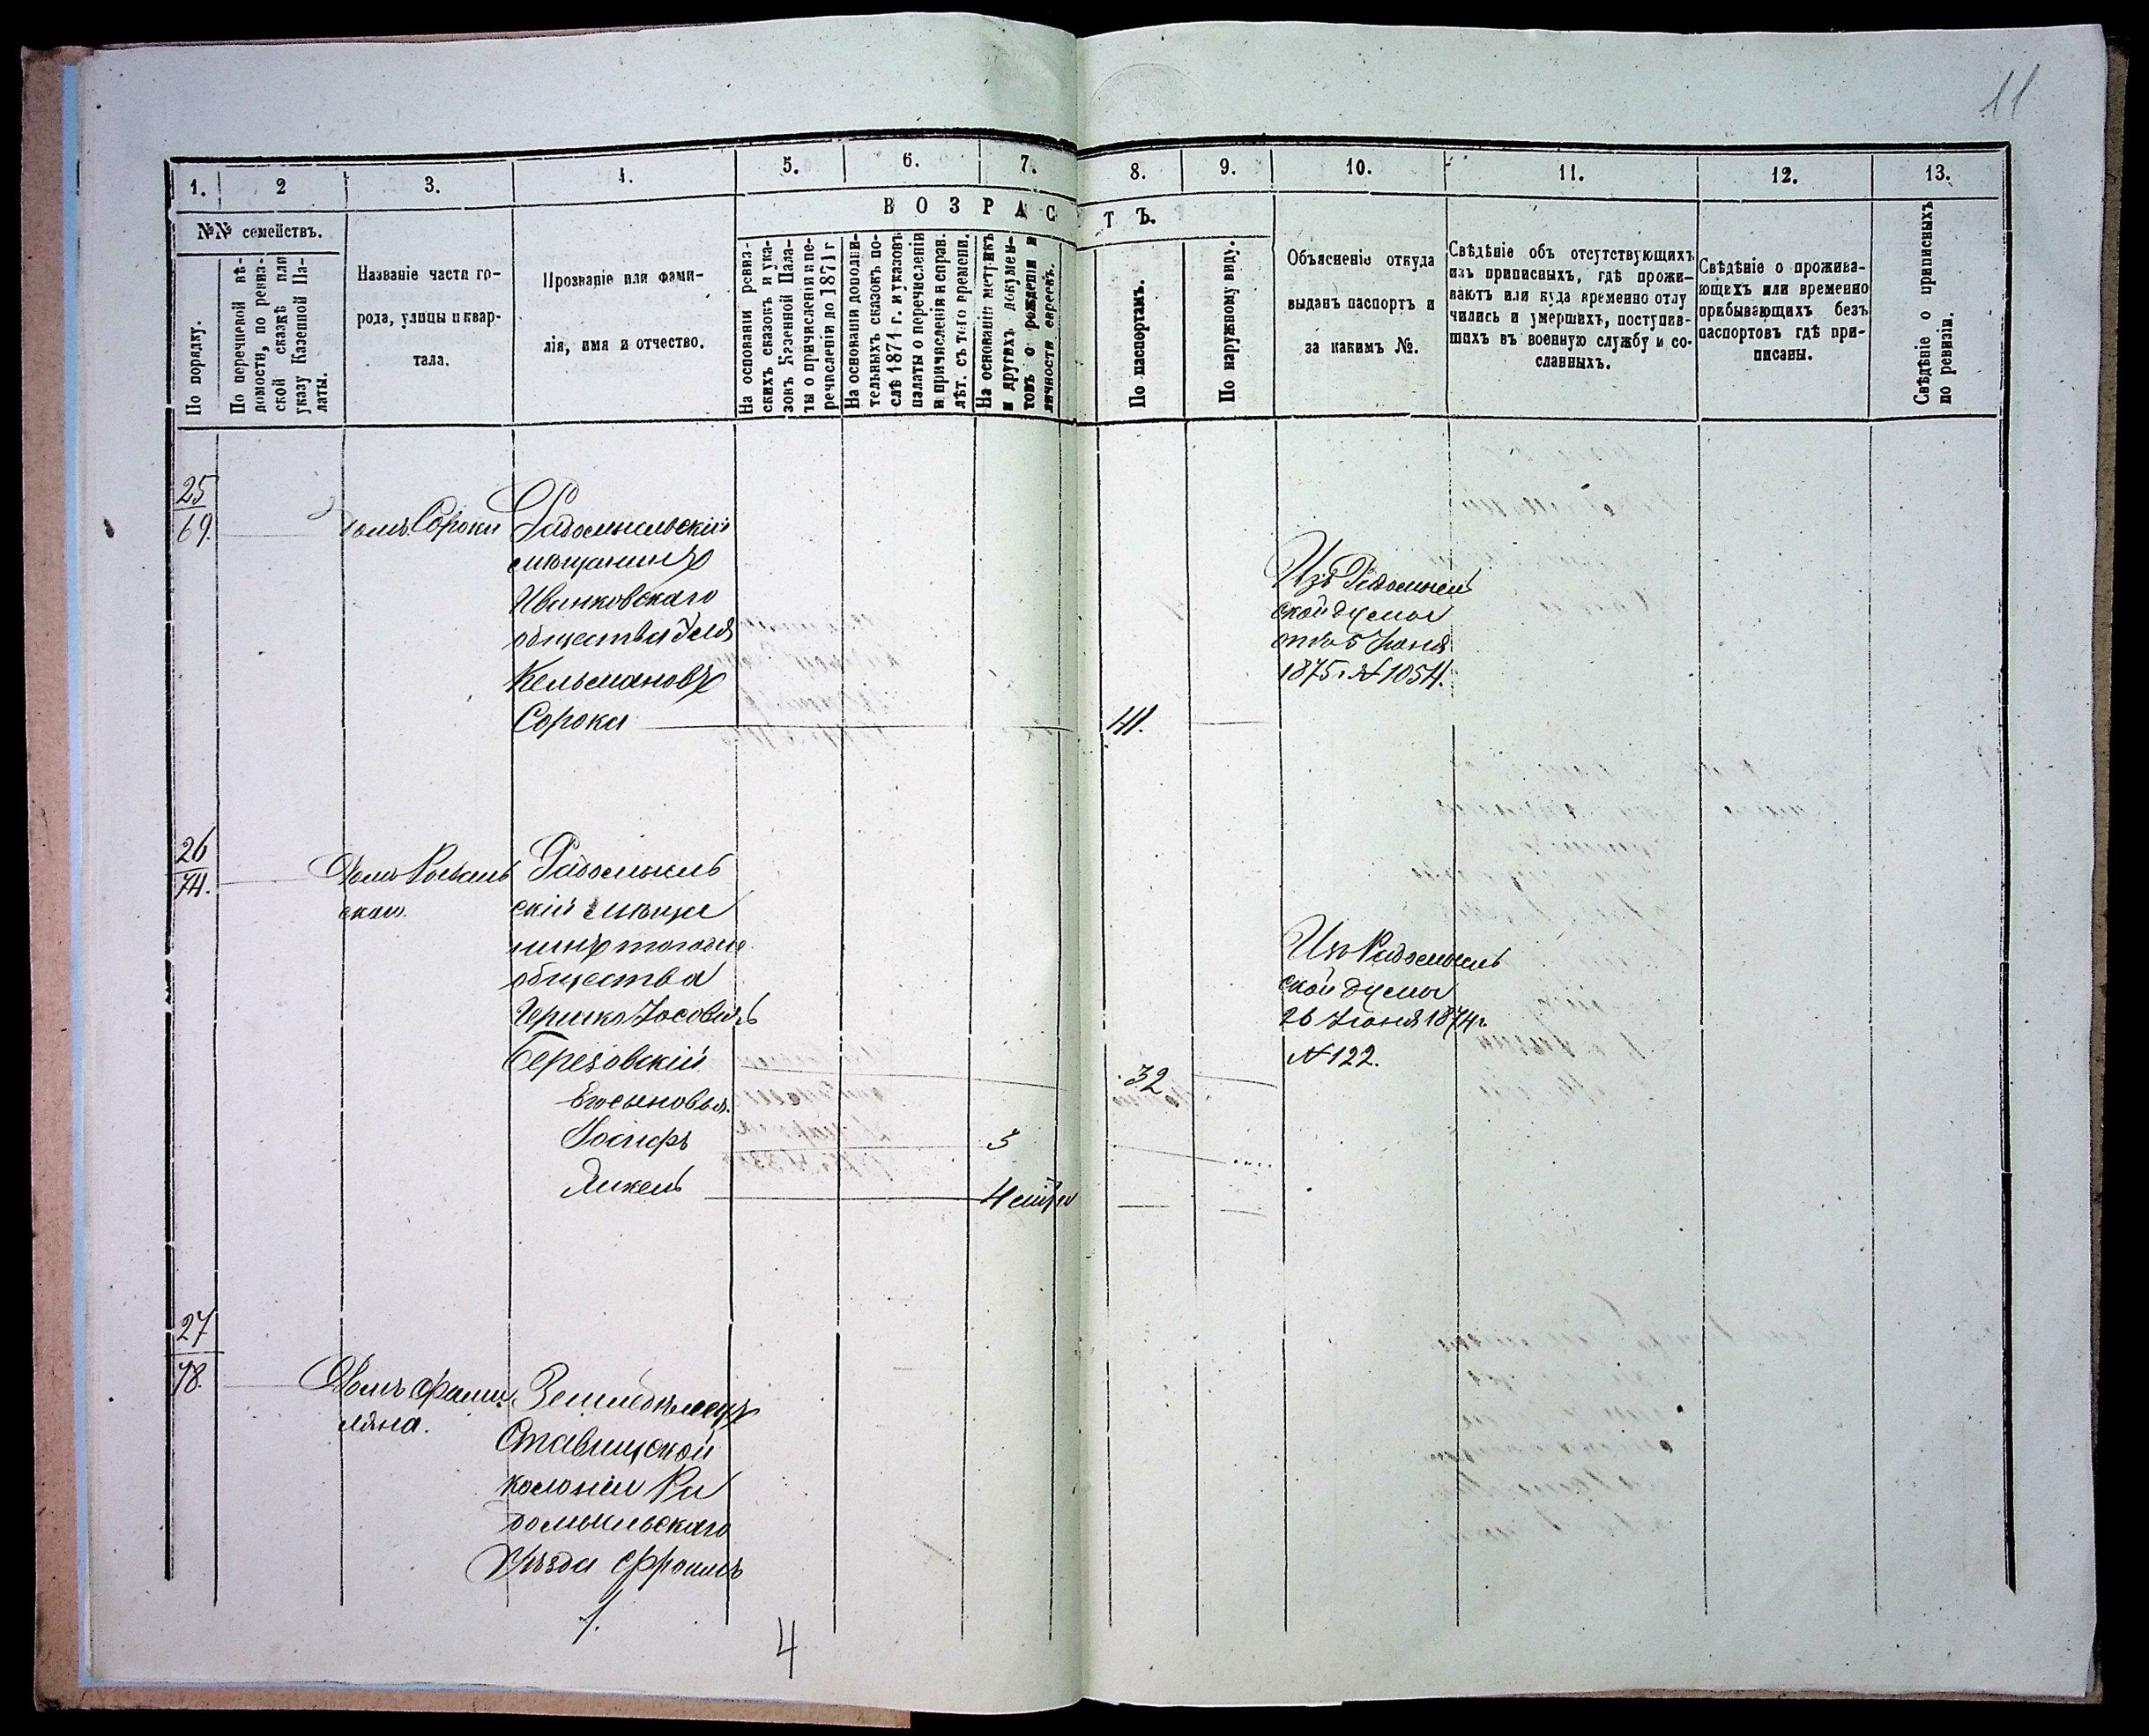 11
1.
2
3.
4.
5.
6.
7.
8.
9.
10.
11.
12.
13.
№№ семействъ.
По порядку.
По перечневой вѣ-
домости, по ревиз-
ской сказкѣ или
указу Казенной Па-
латы.
Названіе части го-
рода, улицы и квар-
тала.
Прозваніе или фами-
лія, имя и отчество.
ВОЗРАСТЪ.
На основаніи ревиз-
скихъ сказокъ и ука-
зовъ Казенной Пала-
ты о причисленіи и пе-
речисленіи до 1871 г
На основаніи дополни-
тельныхъ сказокъ по-
слѣ 1871 г. и указовъ
палаты о перечисленіи
и причисленіи и справ.
лѣт. съ того времени.
На основаніи метрикъ
и другихъ докумен-
товъ о рожденіи и
личности евреевъ.
По паспортамъ.
По наружному виду.
Объясненіе откуда
выданъ паспортъ и
за какимъ №.
Свѣдѣніе объ отсутствующихъ
изъ приписныхъ, гдѣ прожи-
ваютъ или куда временно отлу
чились и умершихъ, поступив-
шихъ въ военную службу и со-
сланныхъ.
Свѣдѣніе о прожива-
ющихъ или временно
прибывающихъ безъ
паспортовъ гдѣ при-
писаны.
Свѣдѣніе о приписныхъ
по ревизіи.
25
69.
домъ Сороки
Радомысльскій
мѣщанинъ
Иванковскаго
общества
Кельмановъ
Сорока
41.
Изъ Радомысль
ской думы
отъ 5 Іюня
1875 г. № 1054.
26
74.
Домъ
скаго.
Радомысль
скій мѣща
нинъ тогоже
общества
Гершко Іосовъ
Березовскій
32
Его сыновья.
Іосифъ
5
Янкель
4
Изъ Радомысль
ской думы
26 Іюня 1874 г.
№ 122.
27
78.
Домъ
Земледѣлецъ
Ставищской
колоніи Ра
домысльскаго
уѣзда Фроимъ
4